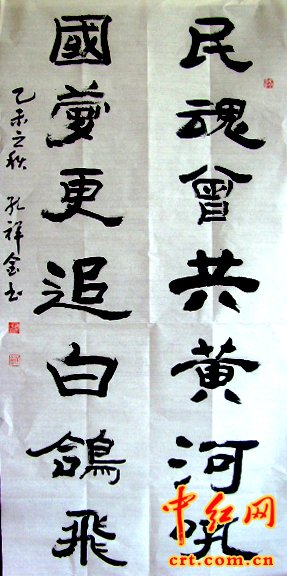 民魂曾共黄河吼
國夢更追白鴿飛
乙未之秋 孔祥金书
中红网
crt.com.cn